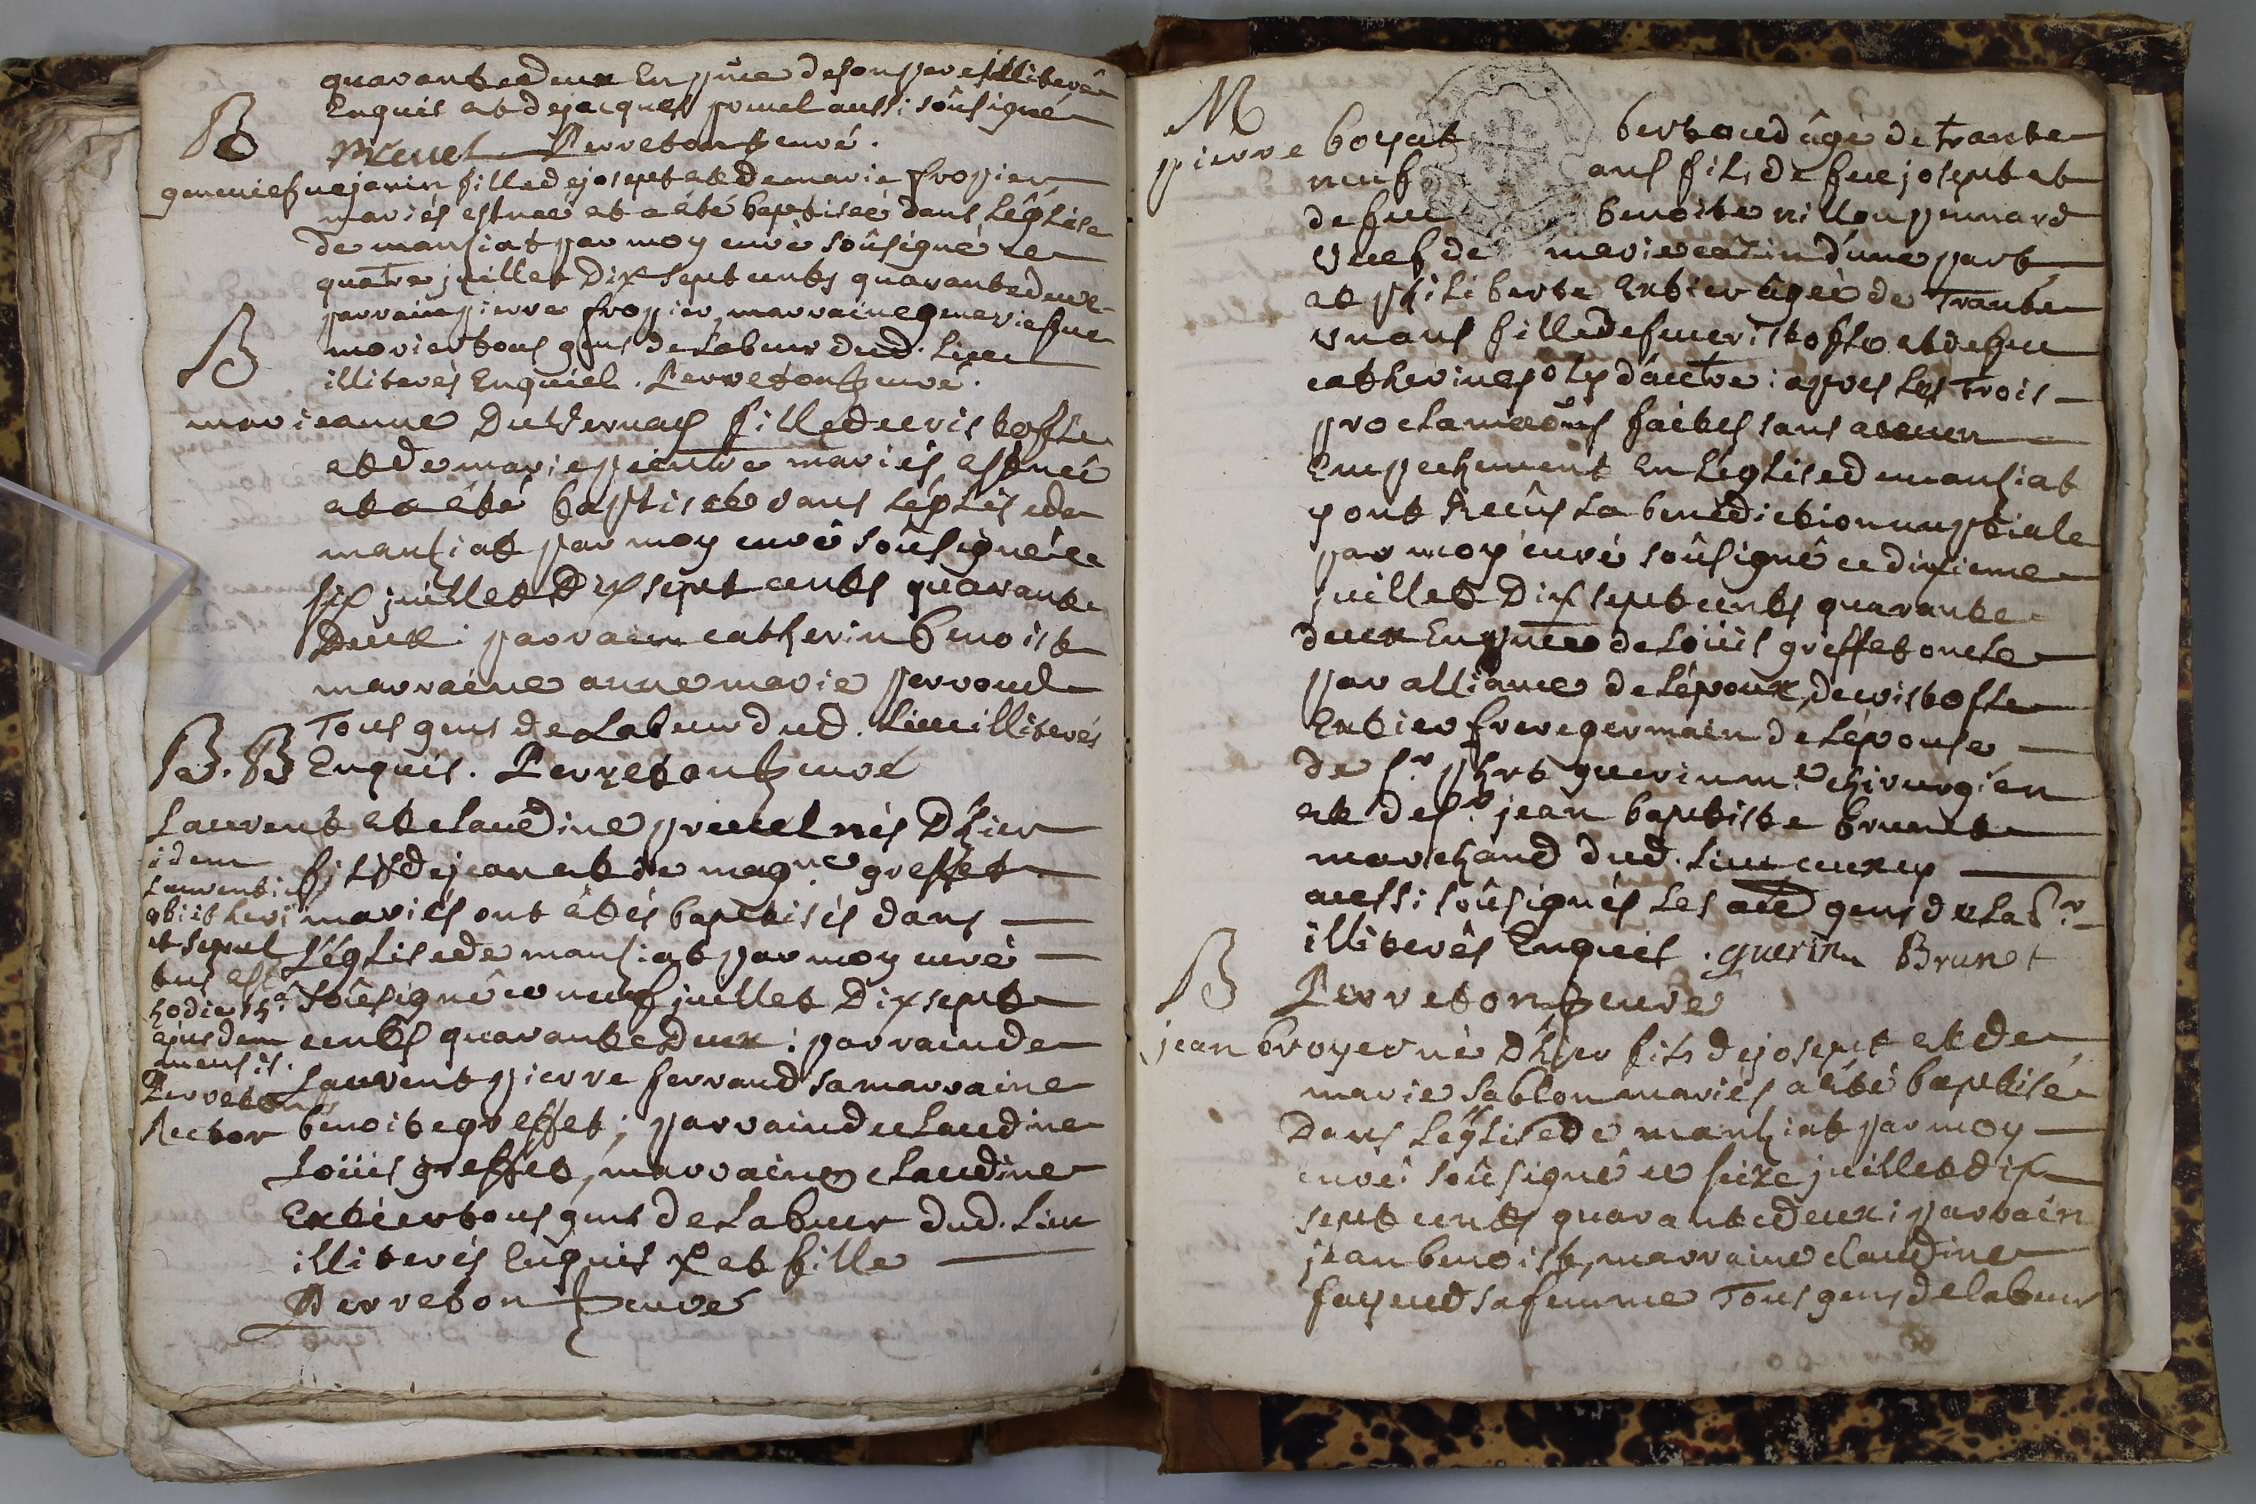 quarante deux En p̃nce de son pere illiteré
Enquis et de jacques pruel aussi soûsigné
B
Preuel Perreton curé.
geneviefve janin fille de josept et de marie fropier
mariés est née et a été baptiseé dans L'église
de manziat par moy curé soûsigné ce
quatre juillet Dix sept cents quarante deux
parrain pierre fropier, marraine geneviefve
B
morier tous gens de Labeur dud. Lieu
illiterés Enquis. Perreton curé.
marieanne Duvernay fille de cristofle
et de marie pientre mariés est neé
et a été baptiseé dans L'église de
manziat par moy curé soûsigné le
six juillet Dix sept cents quarante
Deux : parrain catherin benoist
marraine anne marie perroud
Tous gens de Labeur dud. Lieu illiterés
B. B Enquis. Perreton curé
Laurent et claudine pruel nés D'hier
idem
fils de jean et de magne. greffet
Laurentius
obiit heri mariés ont étés baptisés dans
et sepul L'église de manziat par moy curé
tus est
hodie soûsigné ce neuf juillet Dix sept
ejusdem cents quarante Deux : parrain de
mensis.
Laurent pierre ferrand sa marraine
Perreton
Rector benoite greffet ; parrain de claudine
Loüis greffet, marraine claudine
Extier tous gens de Labeur dud. Lieu
illiterés Enquis et fille
Perreton curé
M
pierre boyat bertoud âgé de trante
neuf ans fils de feu josept et
de feu benoite nillon pennard
veuf de marie cazin d'une part
et philiberte Extier âgeé de Trante
un ans fille de feu cristofle et de feu
catherine poly d'autre : apres Les Trois
proclamaõns faites sans aucun
Empechement En L'église de manziat
y ont Reçûs La benediction nuptiale
par moy curé soûsigné ce dixieme
juillet Dix sept cents quarante
deux En p̃nce de Loüis greffet oncle
par alliance de L'époux, de cristofle
Extier frere germain de L'épouse
de sr. phrt guerin me. chirurgien
et de sr. jean baptiste brunet
marchand dud. Lieu ceux cy
aussi soûsignés Les aũe gens de Labr.
illiterés Enquis. guerin Brunet
B
Perreton curé
jean broyer né D'hier fils de josept et de
marie sablon mariés a été baptisé
Dans L'église de manziat par moy
curé soûsigné ce seize juillet dix
sept cents quarante deux : parrain
jean benoist, marraine claudine
fayend sa femme Tous gens de labeur